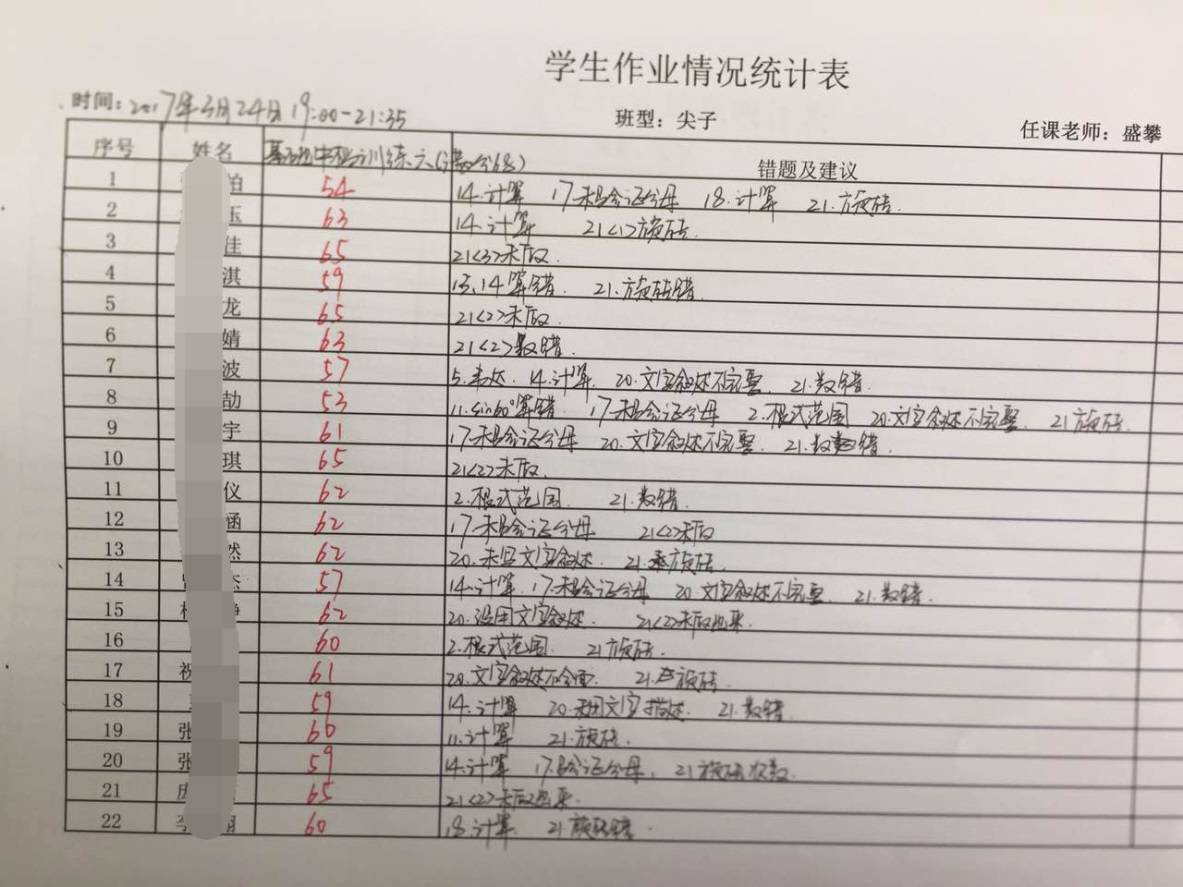 学生作业情况统计表
时间：2017年3月24日 19:00-21:35 班型：尖子 任课老师：盛攀
序号 姓名 基础中档训练六(满分68) 错题及建议
1 柏 54 14.计算 17.未验证分母 18.计算 21.旋转.
2 玉 63 14.计算 21<1>旋转.
3 佳 65 21<3>未取.
4 淇 59 13,14算错. 21.旋转错.
5 龙 65 21<2>未取.
6 婧 63 21<2>数错.
7 波 57 5. 14.计算. 20.文字叙述不完整. 21.数错.
8 劼 53 11.sin60°算错. 17.未验证分母 2.根式范围 20.文字叙述不完整. 21旋转.
9 宇 61 17.未验证分母 20.文字叙述不完整. 21.数错.
10 琪 65 21<2>未取.
11 仪 62 2.根式范围. 21.数错.
12 涵 62 17.未验证分母 21<2>未取
13 然 62 20.未写文字叙述. 21.旋转.
14 杰 57 14.计算. 17.未验证分母 20.文字叙述不完整. 21.数错.
15 静 62 20.没用文字叙述. 21<2>未取出来.
16 60 2.根式范围. 21旋转.
17 祝 61 20.文字叙述不全面. 21.旋转.
18 59 14.计算 20.未用文字描述. 21.数错.
19 张 60 11.计算 21.旋转.
20 张 59 14.计算 17.验证分母. 21旋转次数.
21 65 21<2>未取出来.
22 李 60 18.计算. 21旋转错.